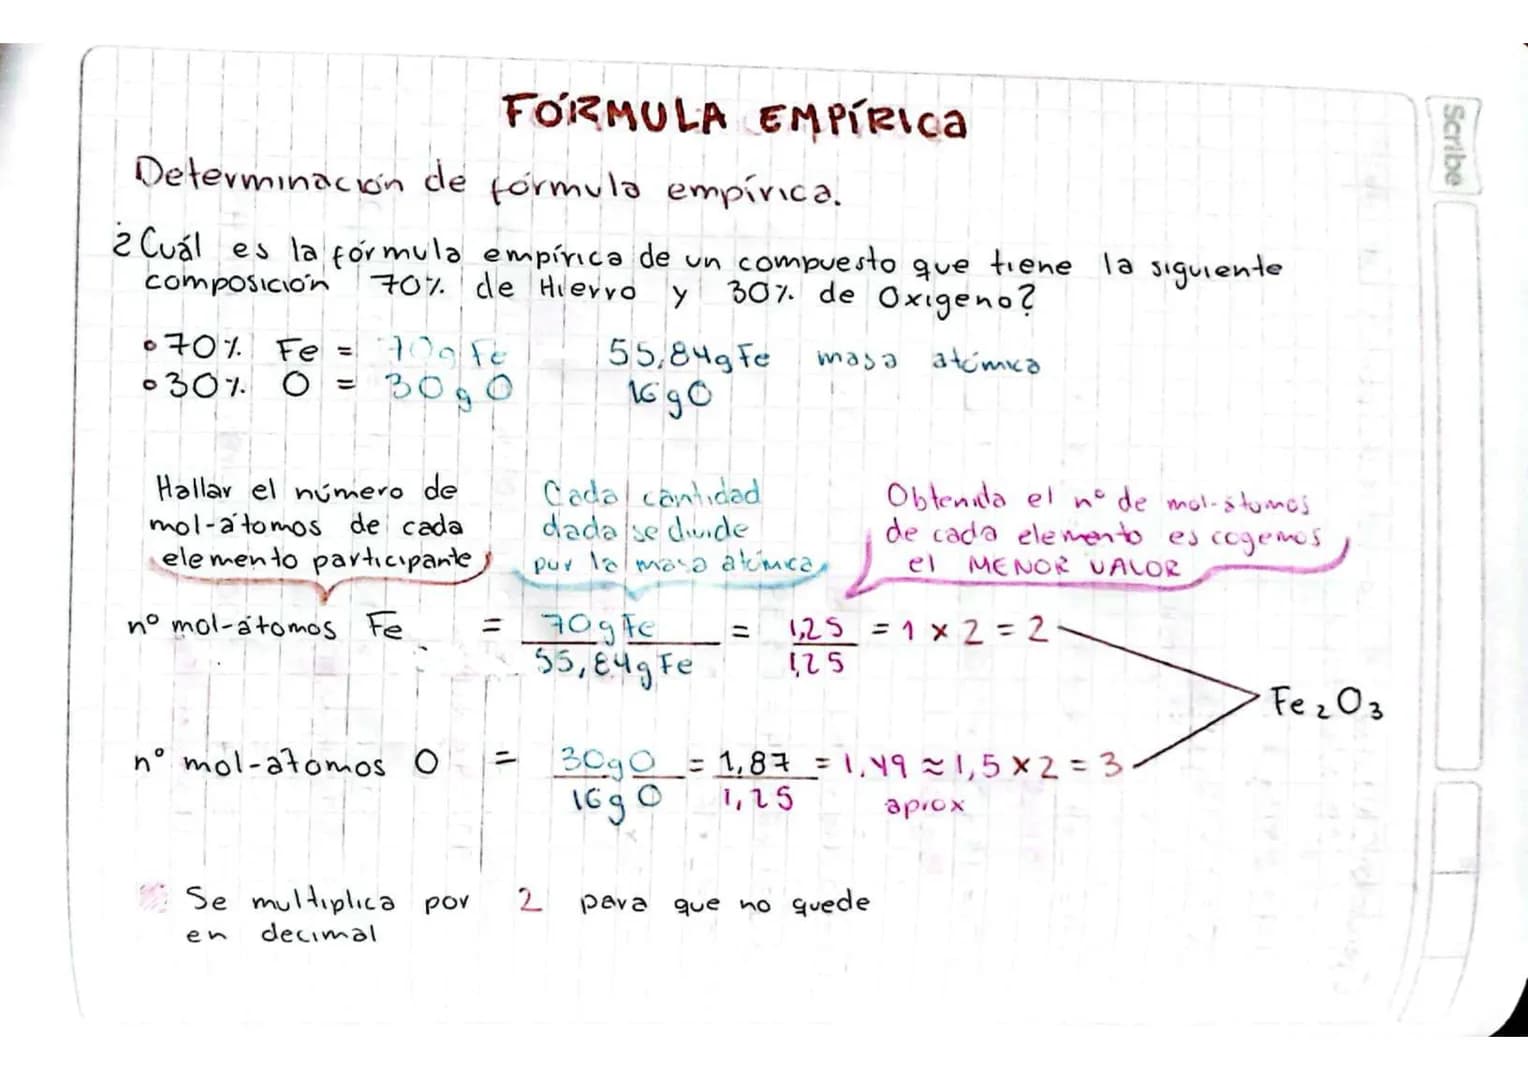 FÓRMULA EMPÍRICA
Scribe
Determinación de fórmula empírica.
¿Cuál es la fórmula empírica de un compuesto que tiene la siguiente
composición 70% de Hierro y 30% de Oxigeno?
• 70% Fe = 70g Fe 55,84g Fe masa atómica
• 30% O = 30g O 16g O
Hallar el número de
mol-átomos de cada
elemento participante
Cada cantidad
dada se divide
por la masa atómica
Obtenida el nº de mol-átomos
de cada elemento escogemos
el MENOR VALOR
nº mol-átomos Fe = 70g Fe = 1,25 = 1 x 2 = 2
55,84g Fe 1,25
Fe2O3
nº mol-atomos O = 30g O = 1,87 = 1,49 ≈ 1,5 x 2 = 3
16g O 1,25 aprox
Se multiplica por 2 para que no quede
en decimal